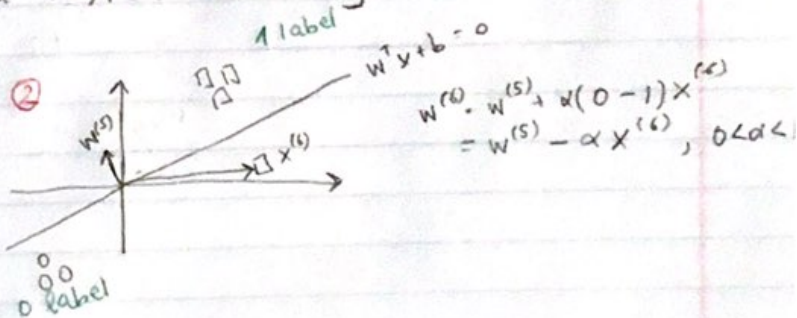 1 label
wᵀx+b = 0
②
w⁽⁵⁾
x⁽⁶⁾
w⁽⁶⁾ = w⁽⁵⁾ + α(0-1)x⁽⁶⁾
= w⁽⁵⁾ - αx⁽⁶⁾, 0<α<
0 label